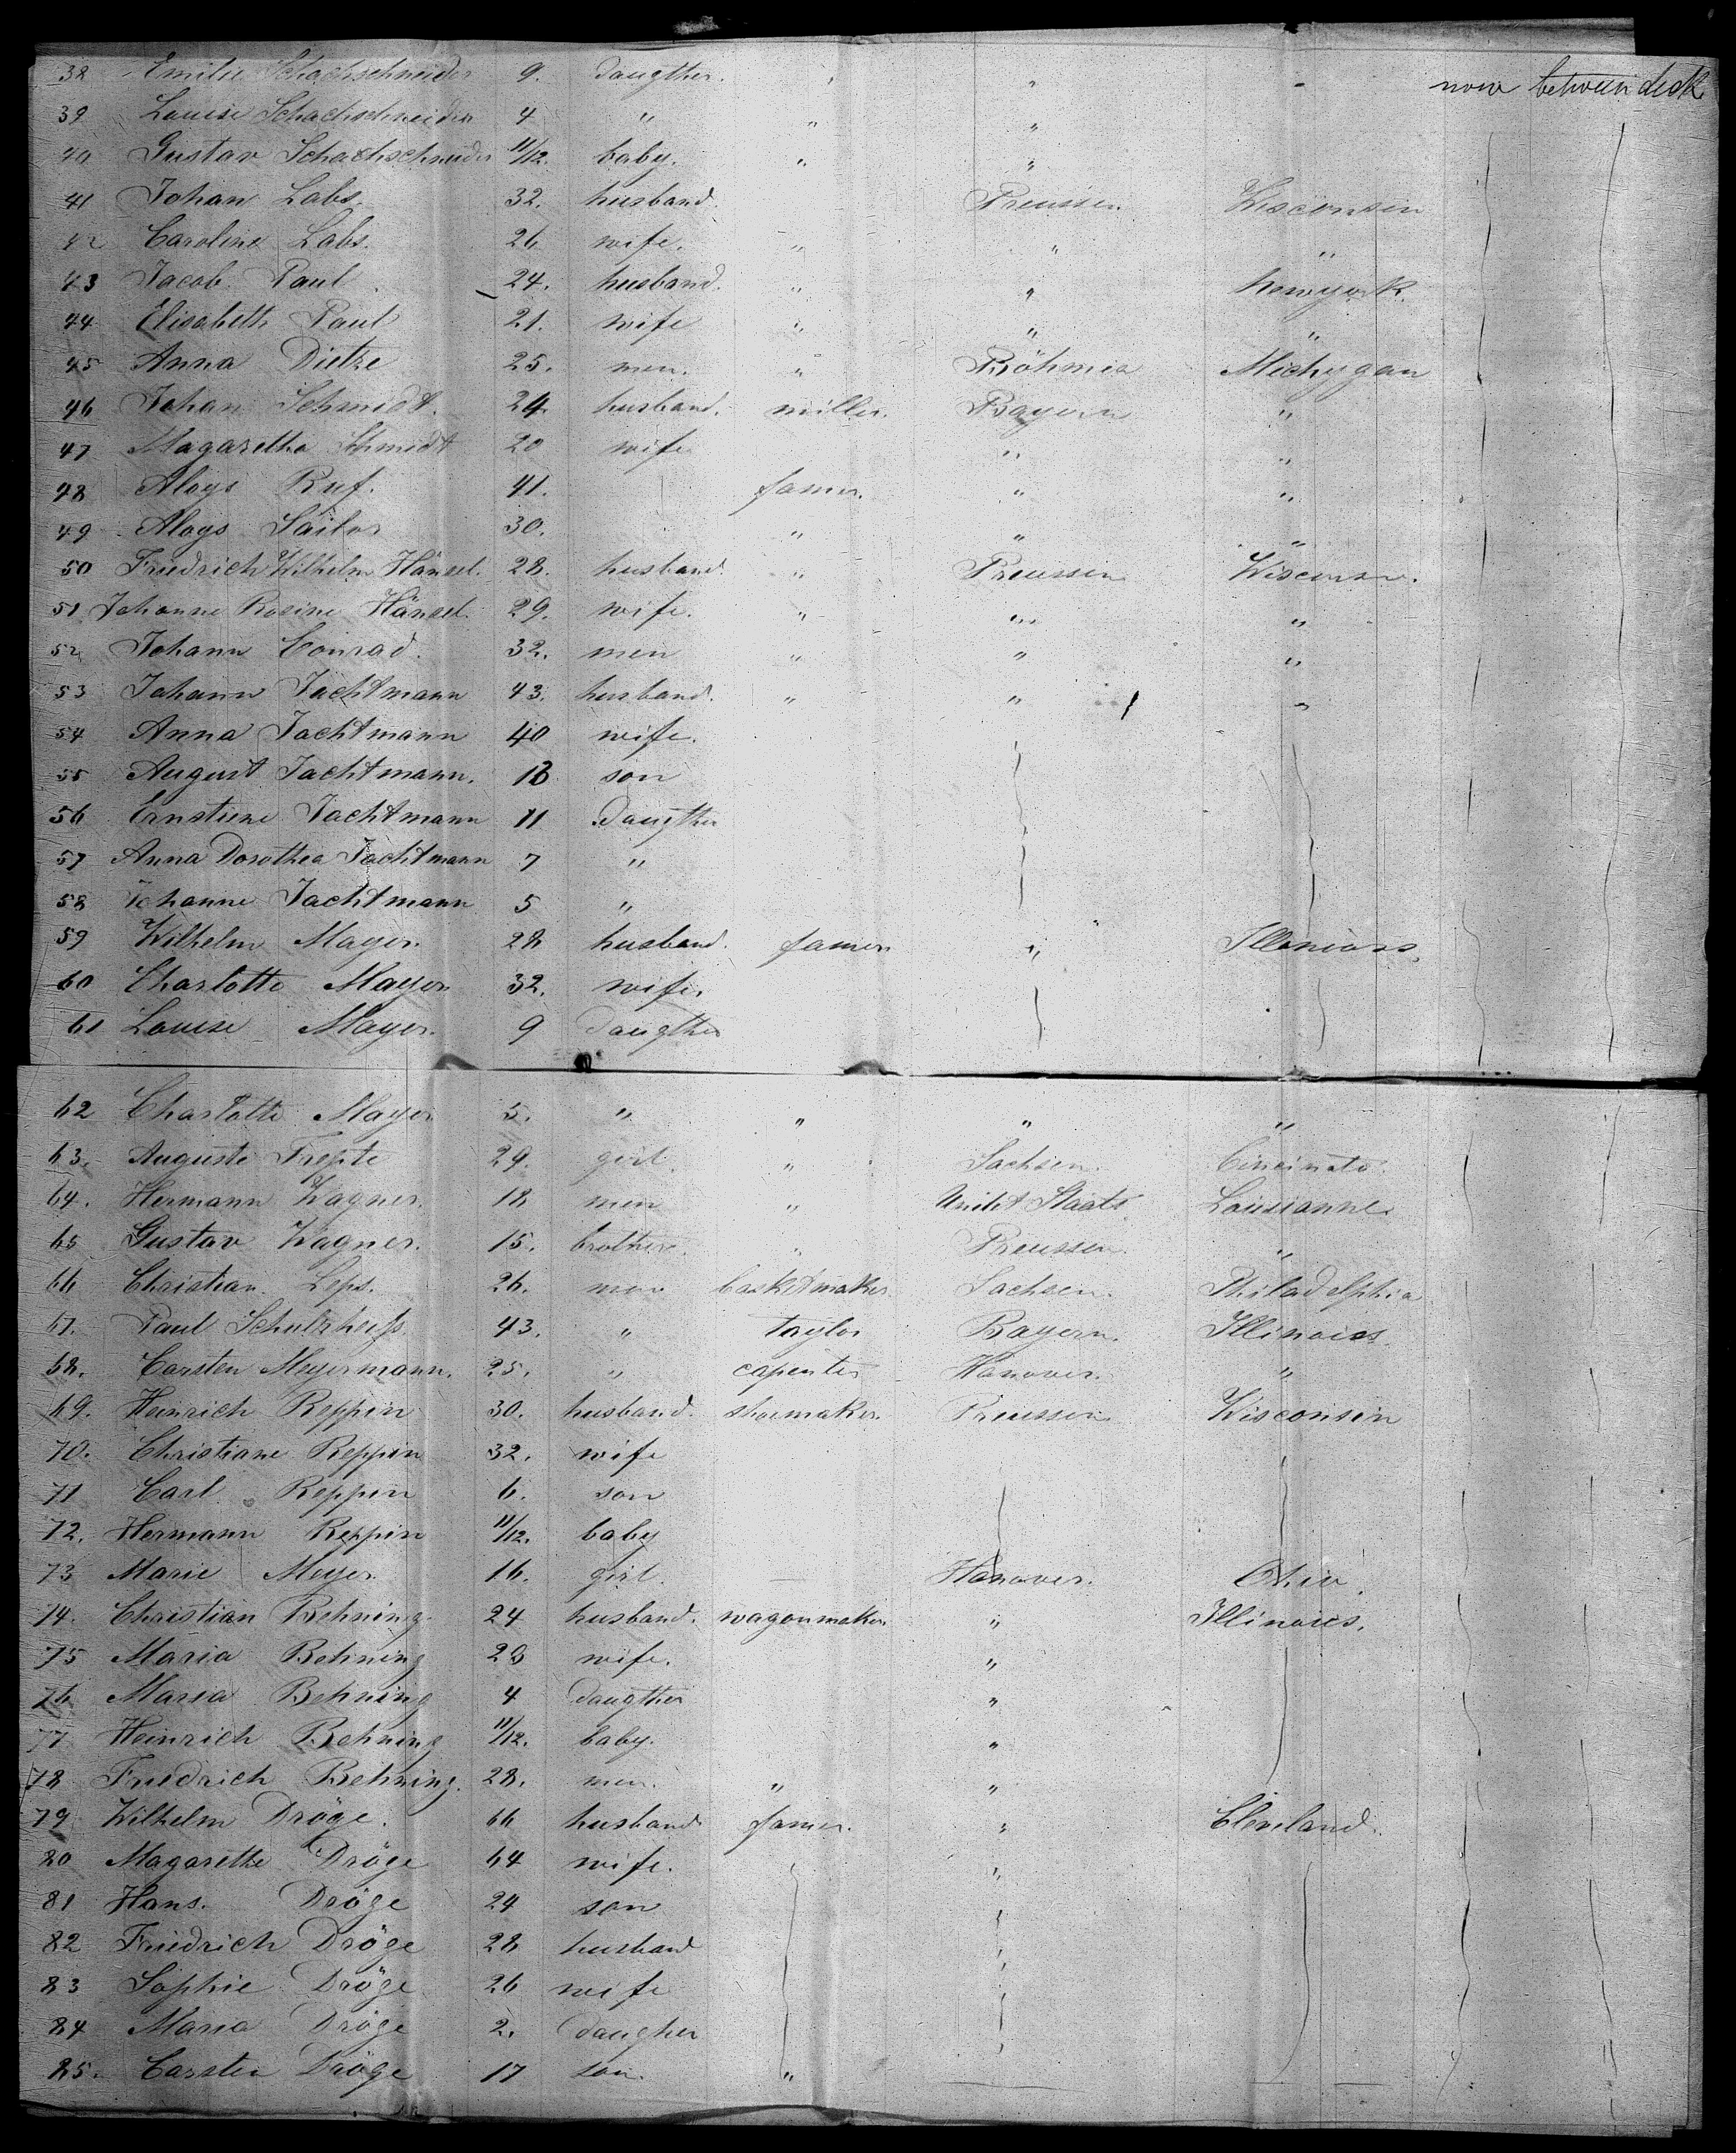 38 Emilie Schachschneider 9. daugther. " " " none between deck
39 Louise Schachschneider 4 " " "
40 Gustav Schachschneider 11/12. baby. " "
41 Johan Labs. 32. husband. Preussen Wisconsin
42 Caroline Labs. 26 wife. " " "
43 Jacob Paul 24. husband. " " Newyork.
44 Elisabeth Paul 21. wife " " "
45 Anna Dietze 25. men. " Böhmia Michygan
46 Johan Schmidt. 24. husband. miller. Bayern "
47 Magaretha Schmidt 20 wife " "
48 Aloys Ruf. 41. famer. " "
49 Aloys Sailor 30. " " "
50 Friedrich Wilhelm Hänsel. 28. husband. " Preussen Wisconsn.
51 Johanne Rosine Hänsel. 29. wife. " " "
52 Johann Conrad. 32. men " " "
53 Johann Jachtmann 43. husband. " " "
54 Anna Jachtmann 40 wife.
55 August Jachtmann. 13 son
56 Ernstine Jachtmann 11 daugther
57 Anna Dorothea Jachtmann 7 "
58 Johanne Jachtmann 5 "
59 Wilhelm Mayer. 28 husband. famer " Illonioss.
60 Charlotte Mayer 32. wife.
61 Louise Mayer. 9 daugther
62 Charlotte Mayer 5. " " " "
63. Auguste Trepte 29. girl. " Sachsen. Cincinato.
64. Hermann Wagner. 18 men " Unitet Staats Lousianne.
65 Gustav Wagner. 15. brother. " Preussen. "
66 Christian Leps. 26. men basketmaker Sachsen. Philadelphia
67. Paul Schulzheiss 43. " taylor Bayern. Illinoiss.
68. Carsten Meyermann. 25. " capenter Hanover. "
69. Heinrich Reppin 30. husband. shoemaker. Preussen Wisconsin
70. Christiane Reppin 32. wife
71 Carl Reppin 6. son
72. Hermann Reppin 11/12. baby
73 Marie Meyer. 16. girl. Hanover. Ohio.
74. Christian Behning 24 husband. wagonmaker. " Illinoies.
75 Maria Behning 23 wife. "
76 Maria Behning 4 daugther "
77 Heinrich Behning 11/12. baby. "
78 Friedrich Behning. 28. men. " "
79 Wilhelm Dröge. 66 husband famer. " Cleveland.
80 Magarethe Dröge 64 wife. "
81 Hans. Dröge 24 son
82 Friedrich Dröge 28 husband
83 Sophie Dröge 26 wife
84 Maria Dröge 2. daugher
85. Carsten Dröge 17 son. "